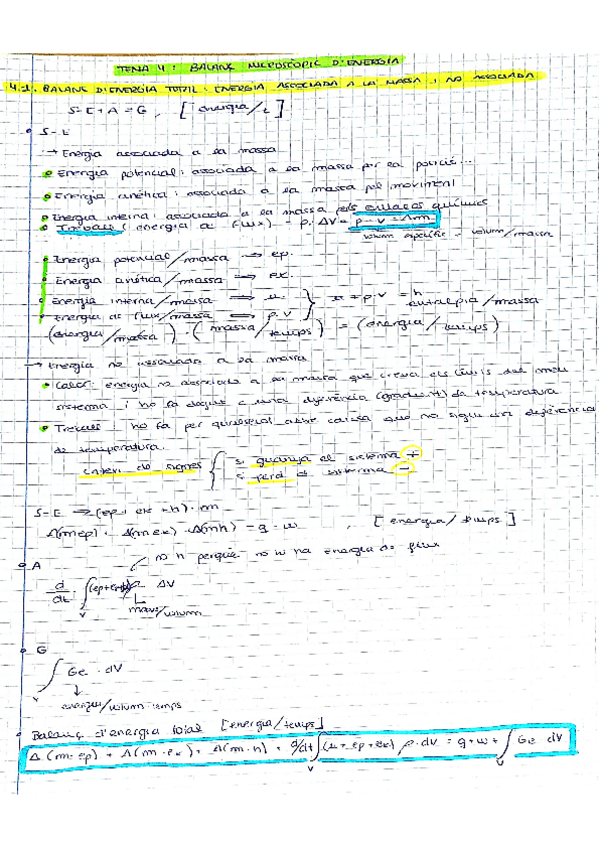 TEMA 4: BALANÇ MICROSCOPIC D'ENERGIA
4.1. BALANÇ D'ENERGIA TOTAL: ENERGIA ASSOCIADA A LA MASSA I NO ASSOCIADA
S-E+A=G, [energia/t]
• S-E
→ Energia associada a la massa
• Energia potencial: associada a la massa per la posició...
• Energia cinètica: associada a la massa pel moviment
• Energia interna: associada a la massa pels enllaços químics
• Treball (energia de flux) = p. ΔV = p.v.Δm
volum específic = volum/massa
• Energia potencial/massa → ep.
• Energia cinètica/massa ⇒ ek.
• Energia interna/massa ⇒ u. } u+p.v = h
• Energia de flux/massa ⇒ p.v entalpia/massa
(energia/massa) · (massa/temps) = (energia/temps)
→ Energia no associada a la massa
• Calor: energia no associada a la massa que creua els límits del meu
sistema i ho fa degut a una diferència (gradient) de temperatura
• Treball: ho fa per qualsevol altre causa que no sigui una diferència
de temperatura.
criteri de signes { si guanya el sistema +
si perd el sistema −
S-E → (ep + ek + h) · m
Δ(m ep) + Δ(m ek) + Δ(m h) = q + w , [energia/temps]
no h perquè no hi ha energia de flux
• A
d/dt ∫v (ep+ek+u)ρ ΔV
massa/volum
• G
∫v Ge · dV
energia/volum·temps
• Balanç d'energia total [energia/temps]
Δ(m·ep) + Δ(m·ek) + Δ(m·h) + d/dt ∫v (u+ep+ek) ρ·dV = q+w+ ∫v Ge dV